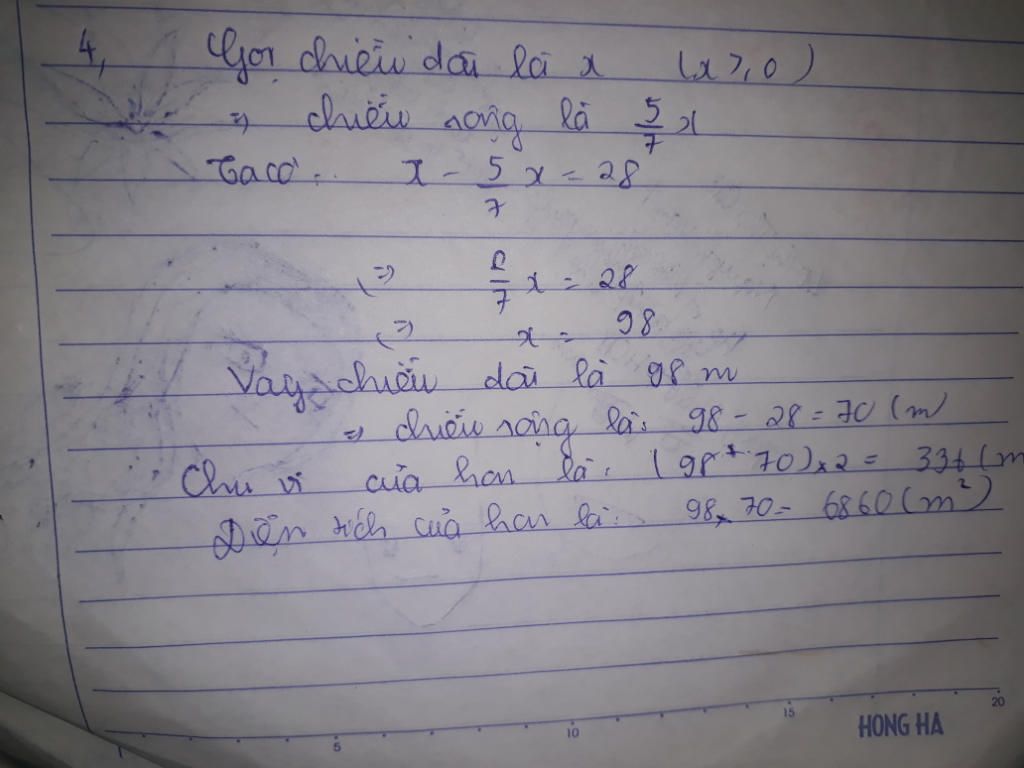 4, Gọi chiều dài là x (x ≥ 0)
⇒ chiều rộng là 5/7 x
Ta có: x - 5/7 x = 28
⇔ 2/7 x = 28
⇔ x = 98
Vay chiều dài là 98 m
⇒ chiều rộng là: 98 - 28 = 70 (m)
Chu vi của hcn là: (98 + 70) x 2 = 336 (m
Diện tích của hcn là: 98 x 70 = 6860 (m²)
5 10 15 20
HONG HA